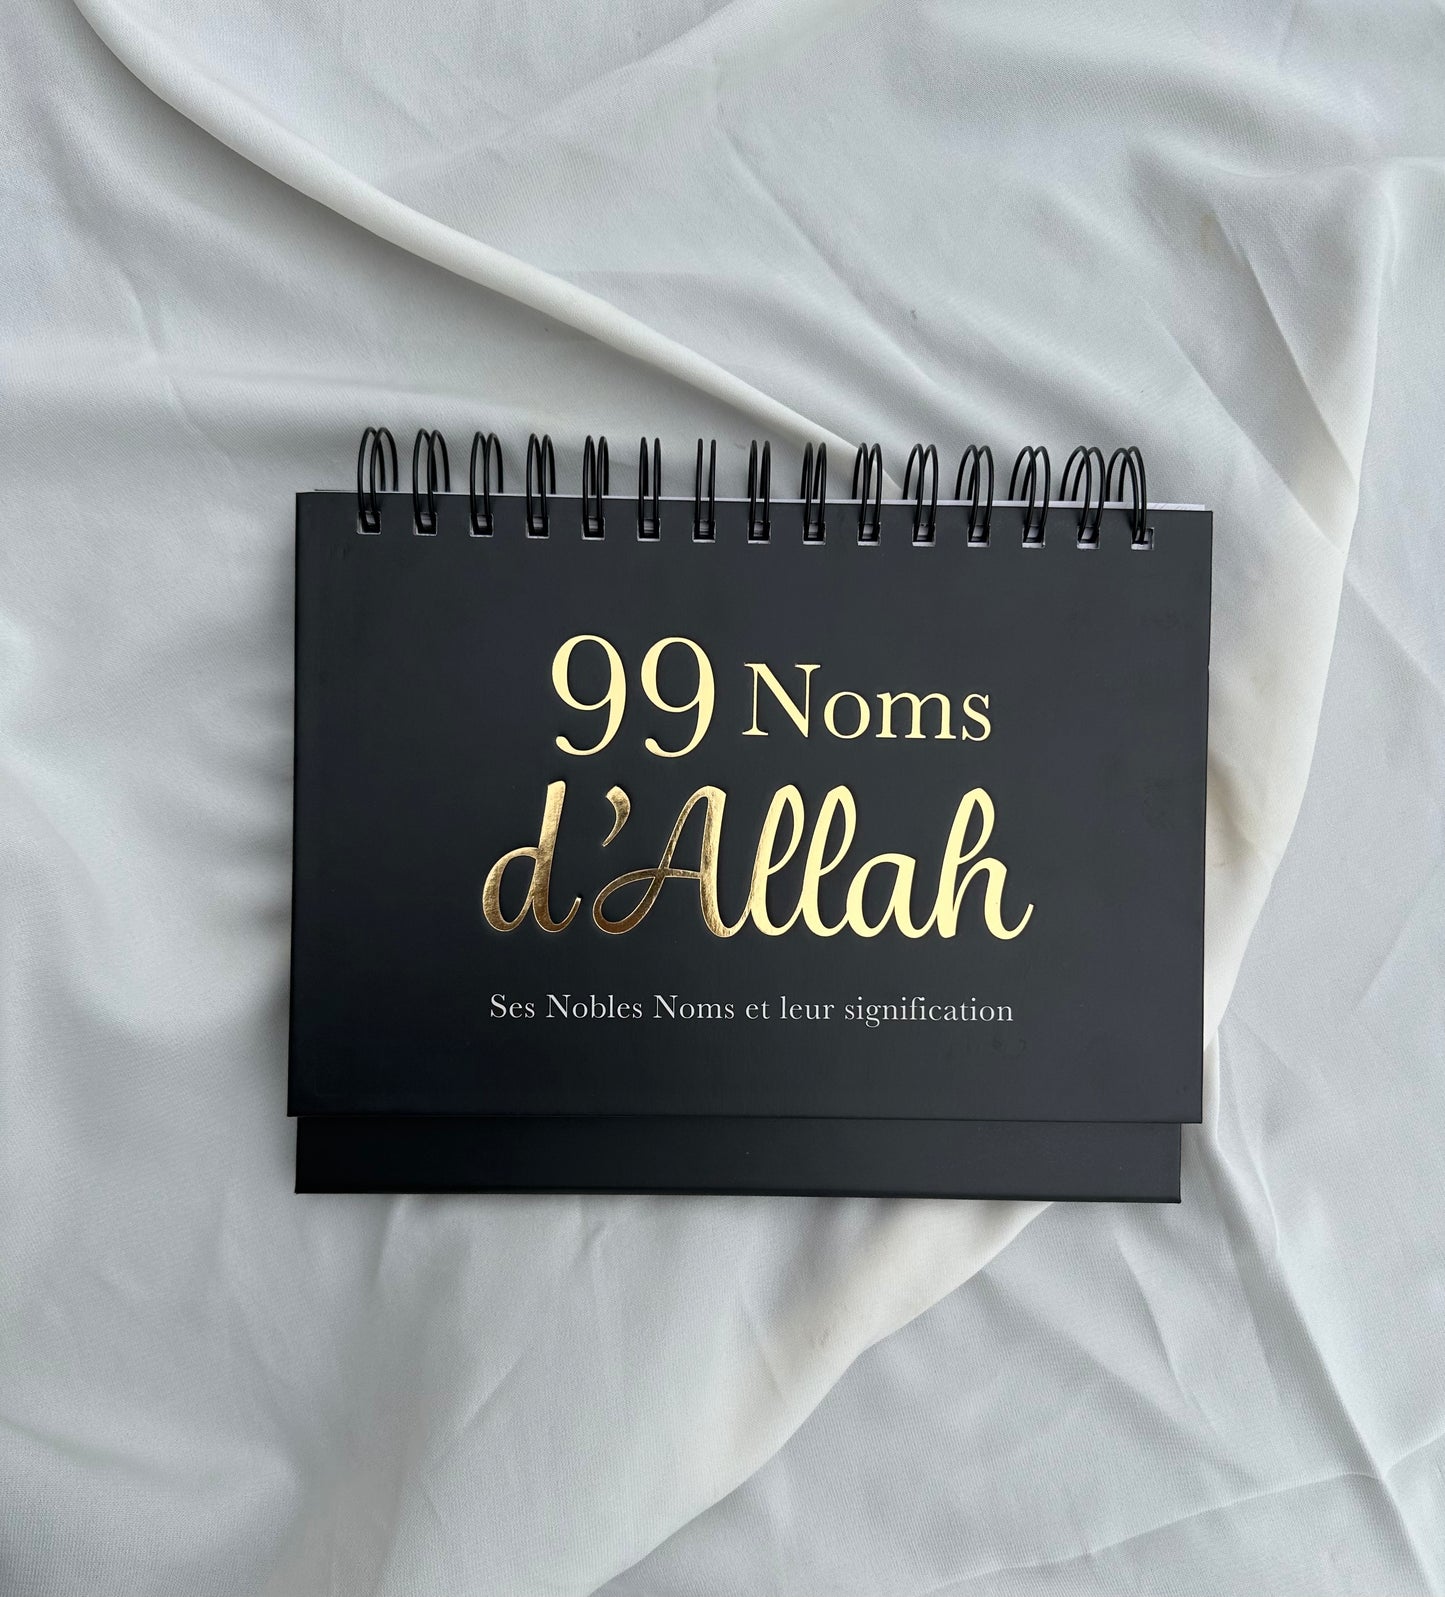 99 Noms
d'Allah
Ses Nobles Noms et leur signification